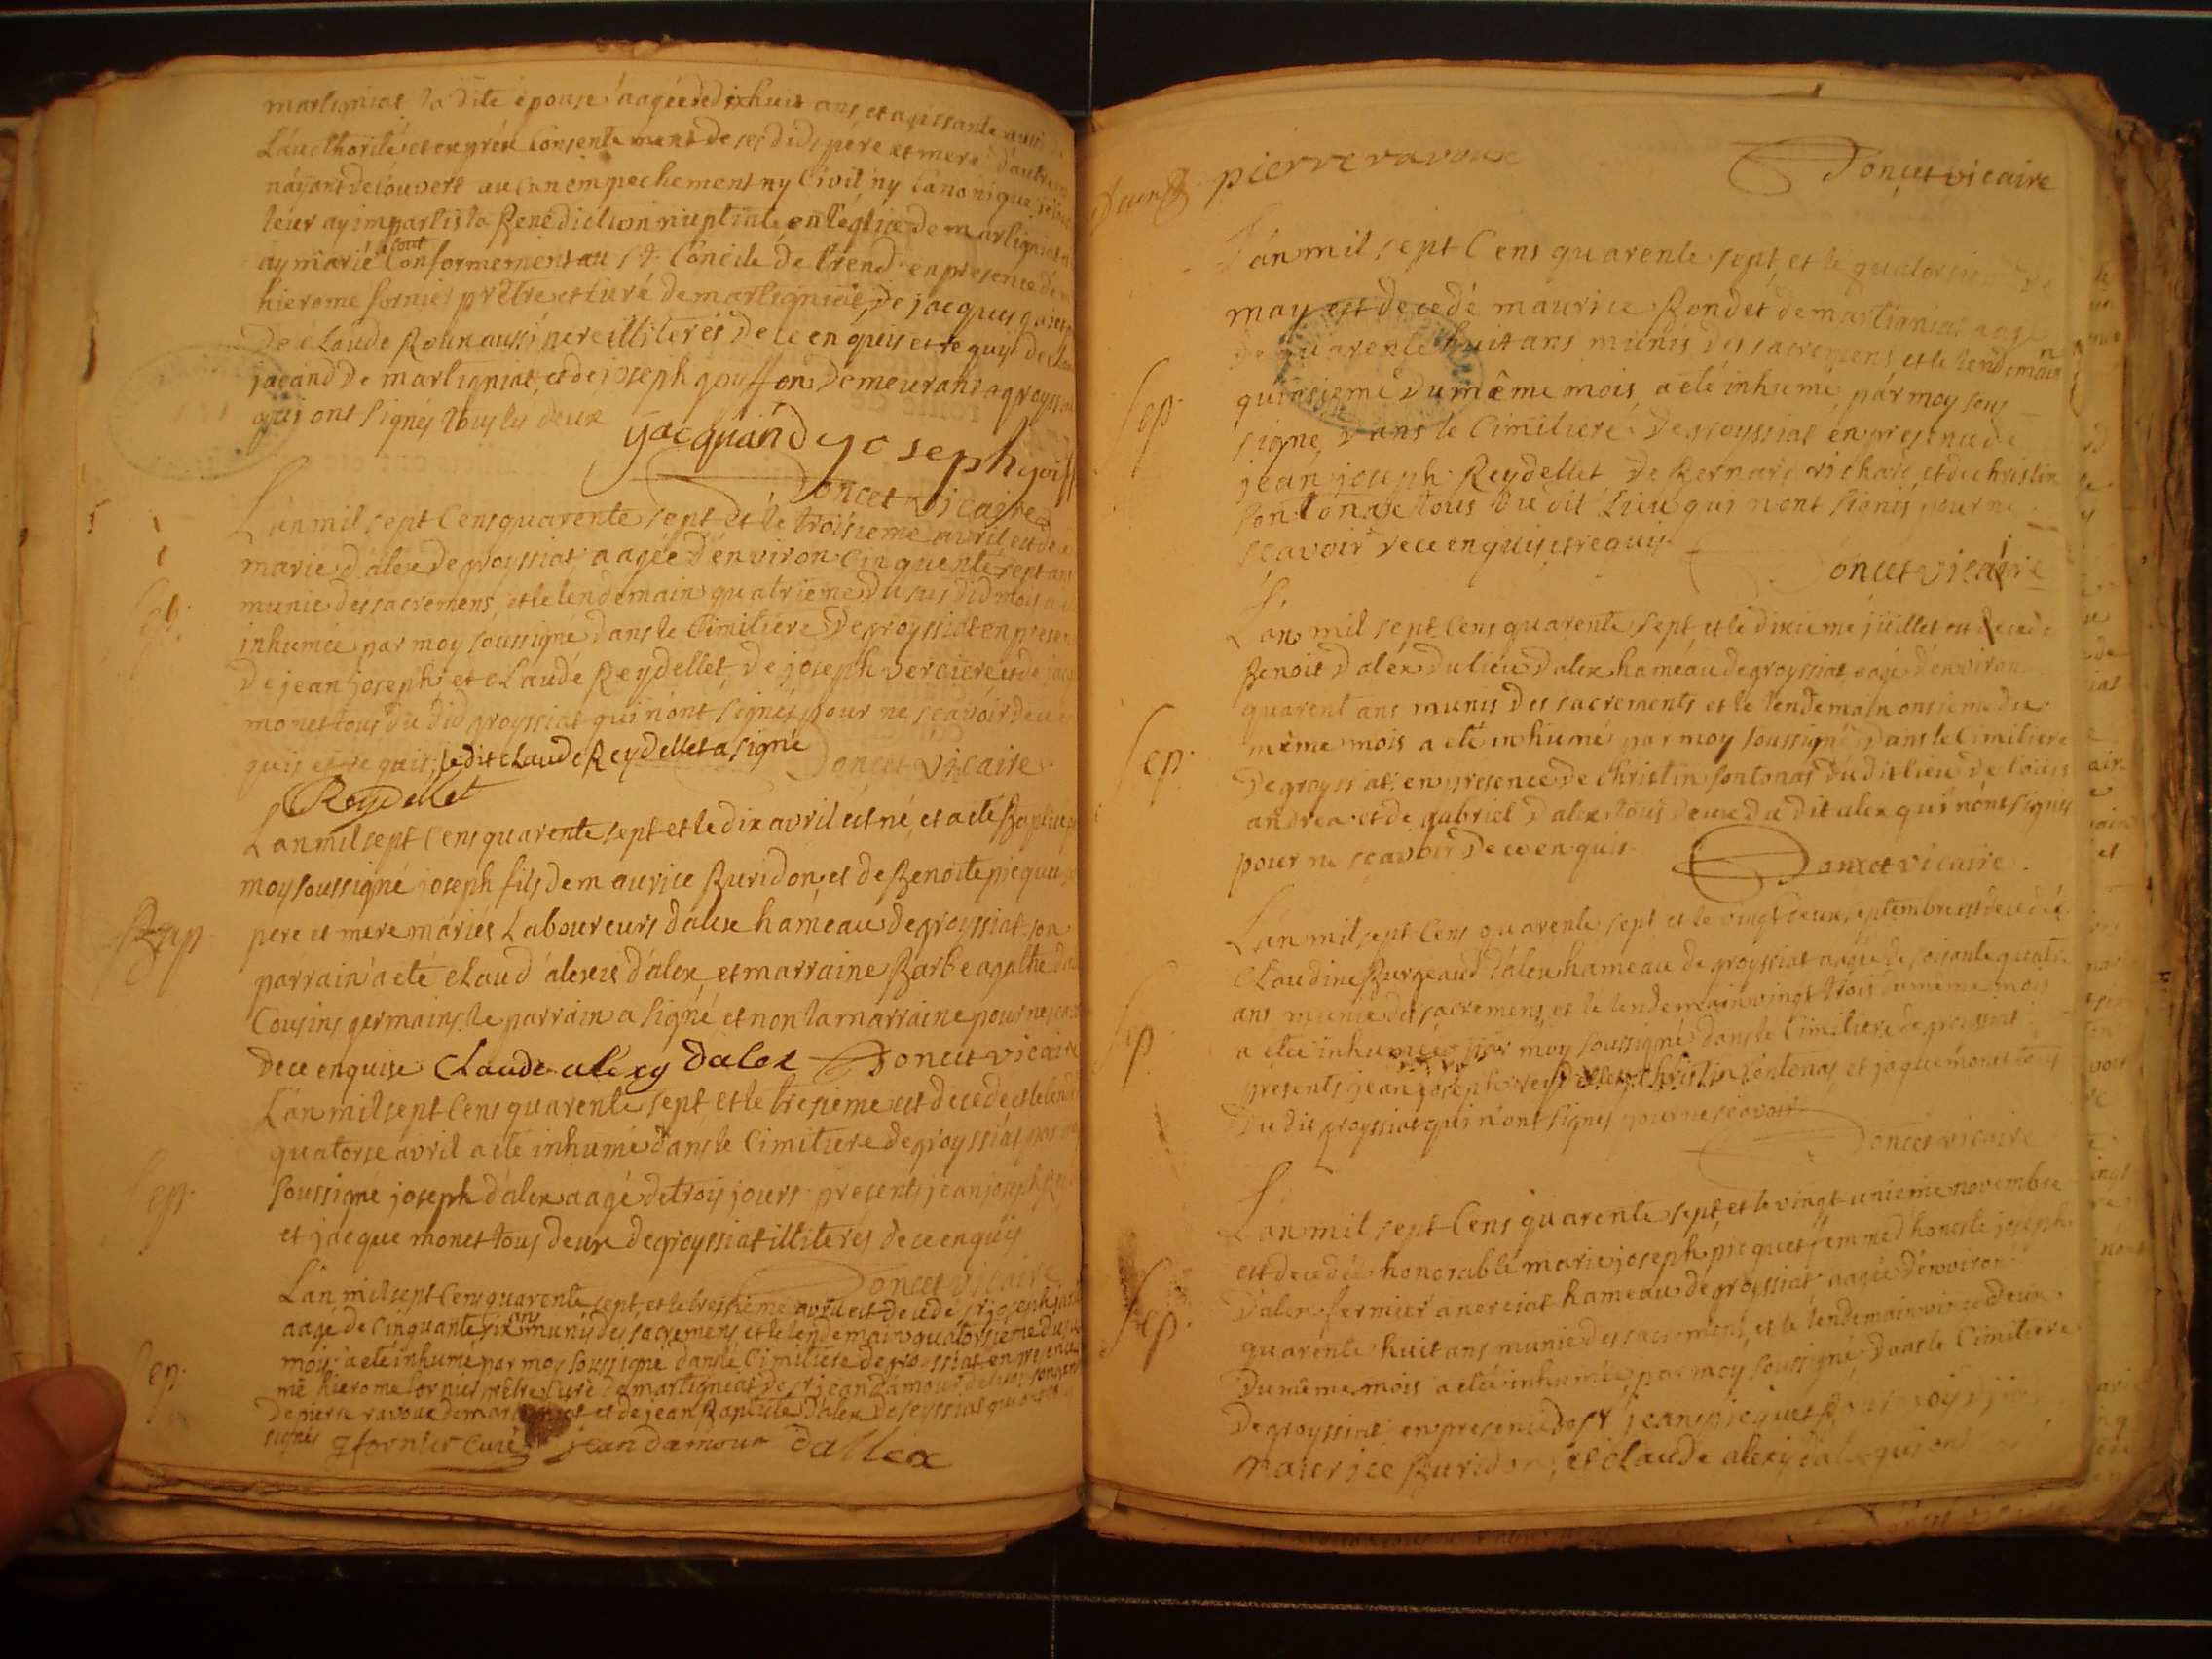 martigniat la dite epouse aagée de dix huit ans, et agissante
L'aucthorité et exprés Consentement de ses dids pére et mere d'autre
n'ayant decouvert aucun empechement ny Civil ny Canonique
leur ay imparti la Benediction nuptiale en l'église de martigniat
ay marié Conformement au st Concile de trend en presence de
hierome fornier prêtre et curé de martigniat, De jacques
De Claude Rolin aussi pere illiterés de ce enquis et requis
jacand de martigniat, et de joseph goyffon demeurant a groyss
qui ont signés tous les deux
yacquand yoseph goiff
Doncet vicaire
L'an mil sept Cens quarente sept et le troisieme avril est
marie d'alex de groyssiat aagée d'environ Cinquente sept ans
munie des sacremens, et le lendemain quatrieme du sus did mois
inhumée par moy soussigné dans le Cimitiere de groyssiat en presen
De jean joseph et Claude Reydellet, De joseph verciere et de
monet tous du did groyssiat qui n'ont signés pour ne sçavoir de ce
quis et requis, ledit Claude Reydellet a signé
Doncet vicaire
Reydellet
L'an mil sept Cens quarente sept et le dix avril est né, et a eté Baptisé
moy soussigné joseph fils de maurice Buridon, et de Benoite picquet
pere et mere mariés Laboureurs d'alex hameau de groyssiat son
Bap
parrain a eté Claud alexis d'alex, et marraine Barbe agathe
Cousins germains, le parrain a signé et non la marraine pour ne
de ce enquise Claude alexy dalex Doncet vicaire
L'an mil sept Cens quarente sept et le tresieme est decedé et le lend
quatorse avril a eté inhumé dans le Cimitiere de groyssiat par
Sep.
soussigné joseph d'alex aagé de trois jours presents jean joseph
et jacque monet tous deux de groyssiat illiterés de ce enquis
Doncet vicaire
L'an mil sept Cens quarente sept, et le tresieme avril est decedé sr joseph
aagé de cinquante six ans munis des sacremens et le lendemain quatorsieme du
mois a eté inhumé par moy soussigné dans le Cimitiere de groyssiat en presence
Sep.
hierome fornier prêtre curé de martigniat de sr jean damour
De pierre ravoux de et de jean Baptiste d'alex de
signés fornier curé jean damour dallex
pierre ravoux
Doncet vicaire
L'an mil sept Cens quarente sept, et le quatorsieme de
may est decedé maurice Rondet de martigniat aagé
de quarente huit ans munis des sacremens, et le lendemain
quinsieme du même mois a eté inhumé par moy sous
Sep.
signé dans le Cimitiere de groyssiat en presence de
jean joseph Reydellet de Bernard richard, et de christin
sontonas tous du dit Lieu qui n'ont signés pour ne
sçavoir de ce enquis et requis
Doncet vicaire
L'an mil sept Cens quarente sept et le dixieme juillet est decedé
Benoit d'alex du lieu d'alex hameau de groyssiat aagé d'environ
quarent ans munis des sacrements et le lendemain onsieme du
même mois a eté inhumé par moy soussigné dans le Cimitiere
Sep.
de groyssiat en presence de christin sontonas du dit lieu de louis
andrea et de gabriel d'alex tous deux du dit alex qui n'ont signés
pour ne sçavoir de ce enquis
Doncet vicaire
L'an mil sept Cens quarente sept et le vingt deux septembre est decedée
Claudine Burgeaud d'alex hameau de groyssiat aagée de soisante quatre
ans munie des sacremens, et le lendemain vingt trois du même mois
Sep
a etée inhumée par moy soussigné dans le Cimitiere de groyssiat
presents jean joseph reydellet, christin sontonas, et jaque monet tous
du dit groyssiat qui n'ont signés pour ne sçavoir
Doncet vicaire
L'an mil sept Cens quarente sept, et le vingt unieme novembre
est decedée honorable marie joseph picquet femme d'honeste joseph
d'alex fermier a nerciat hameau de groyssiat aagée d'environ
Sep.
quarente huit ans munie des sacremens, et le lendemain vingt deux
du même mois a etée inhumée par moy soussigné dans le Cimitiere
de groyssiat en presence de sr jean picquet
maurice Buridon, et Claude alexy d'alex qui ont